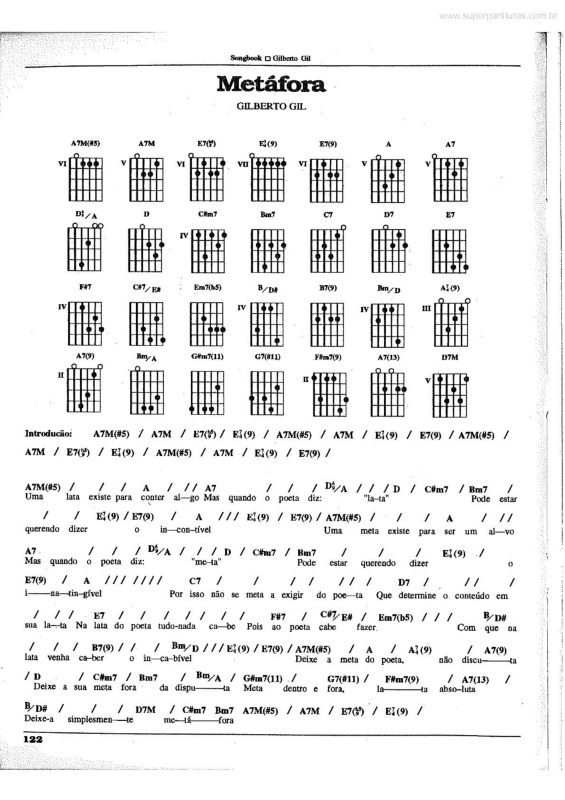 www.superpartituras.com.br
Songbook □ Gilberto Gil
Metáfora
GILBERTO GIL
A7M(#5) A7M E7(b9) E7/4(9) E7(9) A A7
VI V VI VII VI V V
D6/A D C#m7 Bm7 C7 D7 E7
IV
F#7 C#7/E# Em7(b5) B/D# B7(9) Bm/D A7/4(9)
IV IV IV III
A7(9) Bm/A G#m7(11) G7(#11) F#m7(9) A7(13) D7M
II II V
Introducão: A7M(#5) / A7M / E7(b9) / E7/4(9) / A7M(#5) / A7M / E7/4(9) / E7(9) / A7M(#5) /
A7M / E7(b9) / E7/4(9) / A7M(#5) / A7M / E7/4(9) / E7(9) /
A7M(#5) / / / A / // A7 / / / D6/A / / / D / C#m7 / Bm7 /
Uma lata existe para conter al—go Mas quando o poeta diz: "la—ta" Pode estar
/ / E7/4(9) / E7(9) / A /// E7/4(9) / E7(9) / A7M(#5) / / / A / //
querendo dizer o in—contível Uma meta existe para ser um al—vo
A7 / / / D6/A / / / D / C#m7 / Bm7 / / / E7/4(9) /
Mas quando o poeta diz: "me—ta" Pode estar querendo dizer o
E7(9) / A /// //// C7 / / / / /// D7 / // /
i——na—tin—gível Por isso não se meta a exigir do poe—ta Que determine o conteúdo em
/ / / E7 / / / / / / / F#7 / C#7/E# / Em7(b5) / / / B/D#
sua la—ta Na lata do poeta tudo-nada ca—be Pois ao poeta cabe fazer Com que na
/ / / B7(9) / / Bm/D /// E7/4(9) / E7(9) / A7M(#5) / A / A7/4(9) / A7(9)
lata venha ca—ber o in—ca—bível Deixe a meta do poeta, não discu——ta
/ D / C#m7 / Bm7 / Bm/A / G#m7(11) / G7(#11) / F#m7(9) / A7(13) /
Deixe a sua meta fora da dispu———ta Meta dentro e fora, la———ta abso-luta
B/D# / / / D7M / C#m7 Bm7 A7M(#5) / A7M / E7(b9) / E7/4(9) /
Deixe-a simplesmen—te me—tá——fora
122